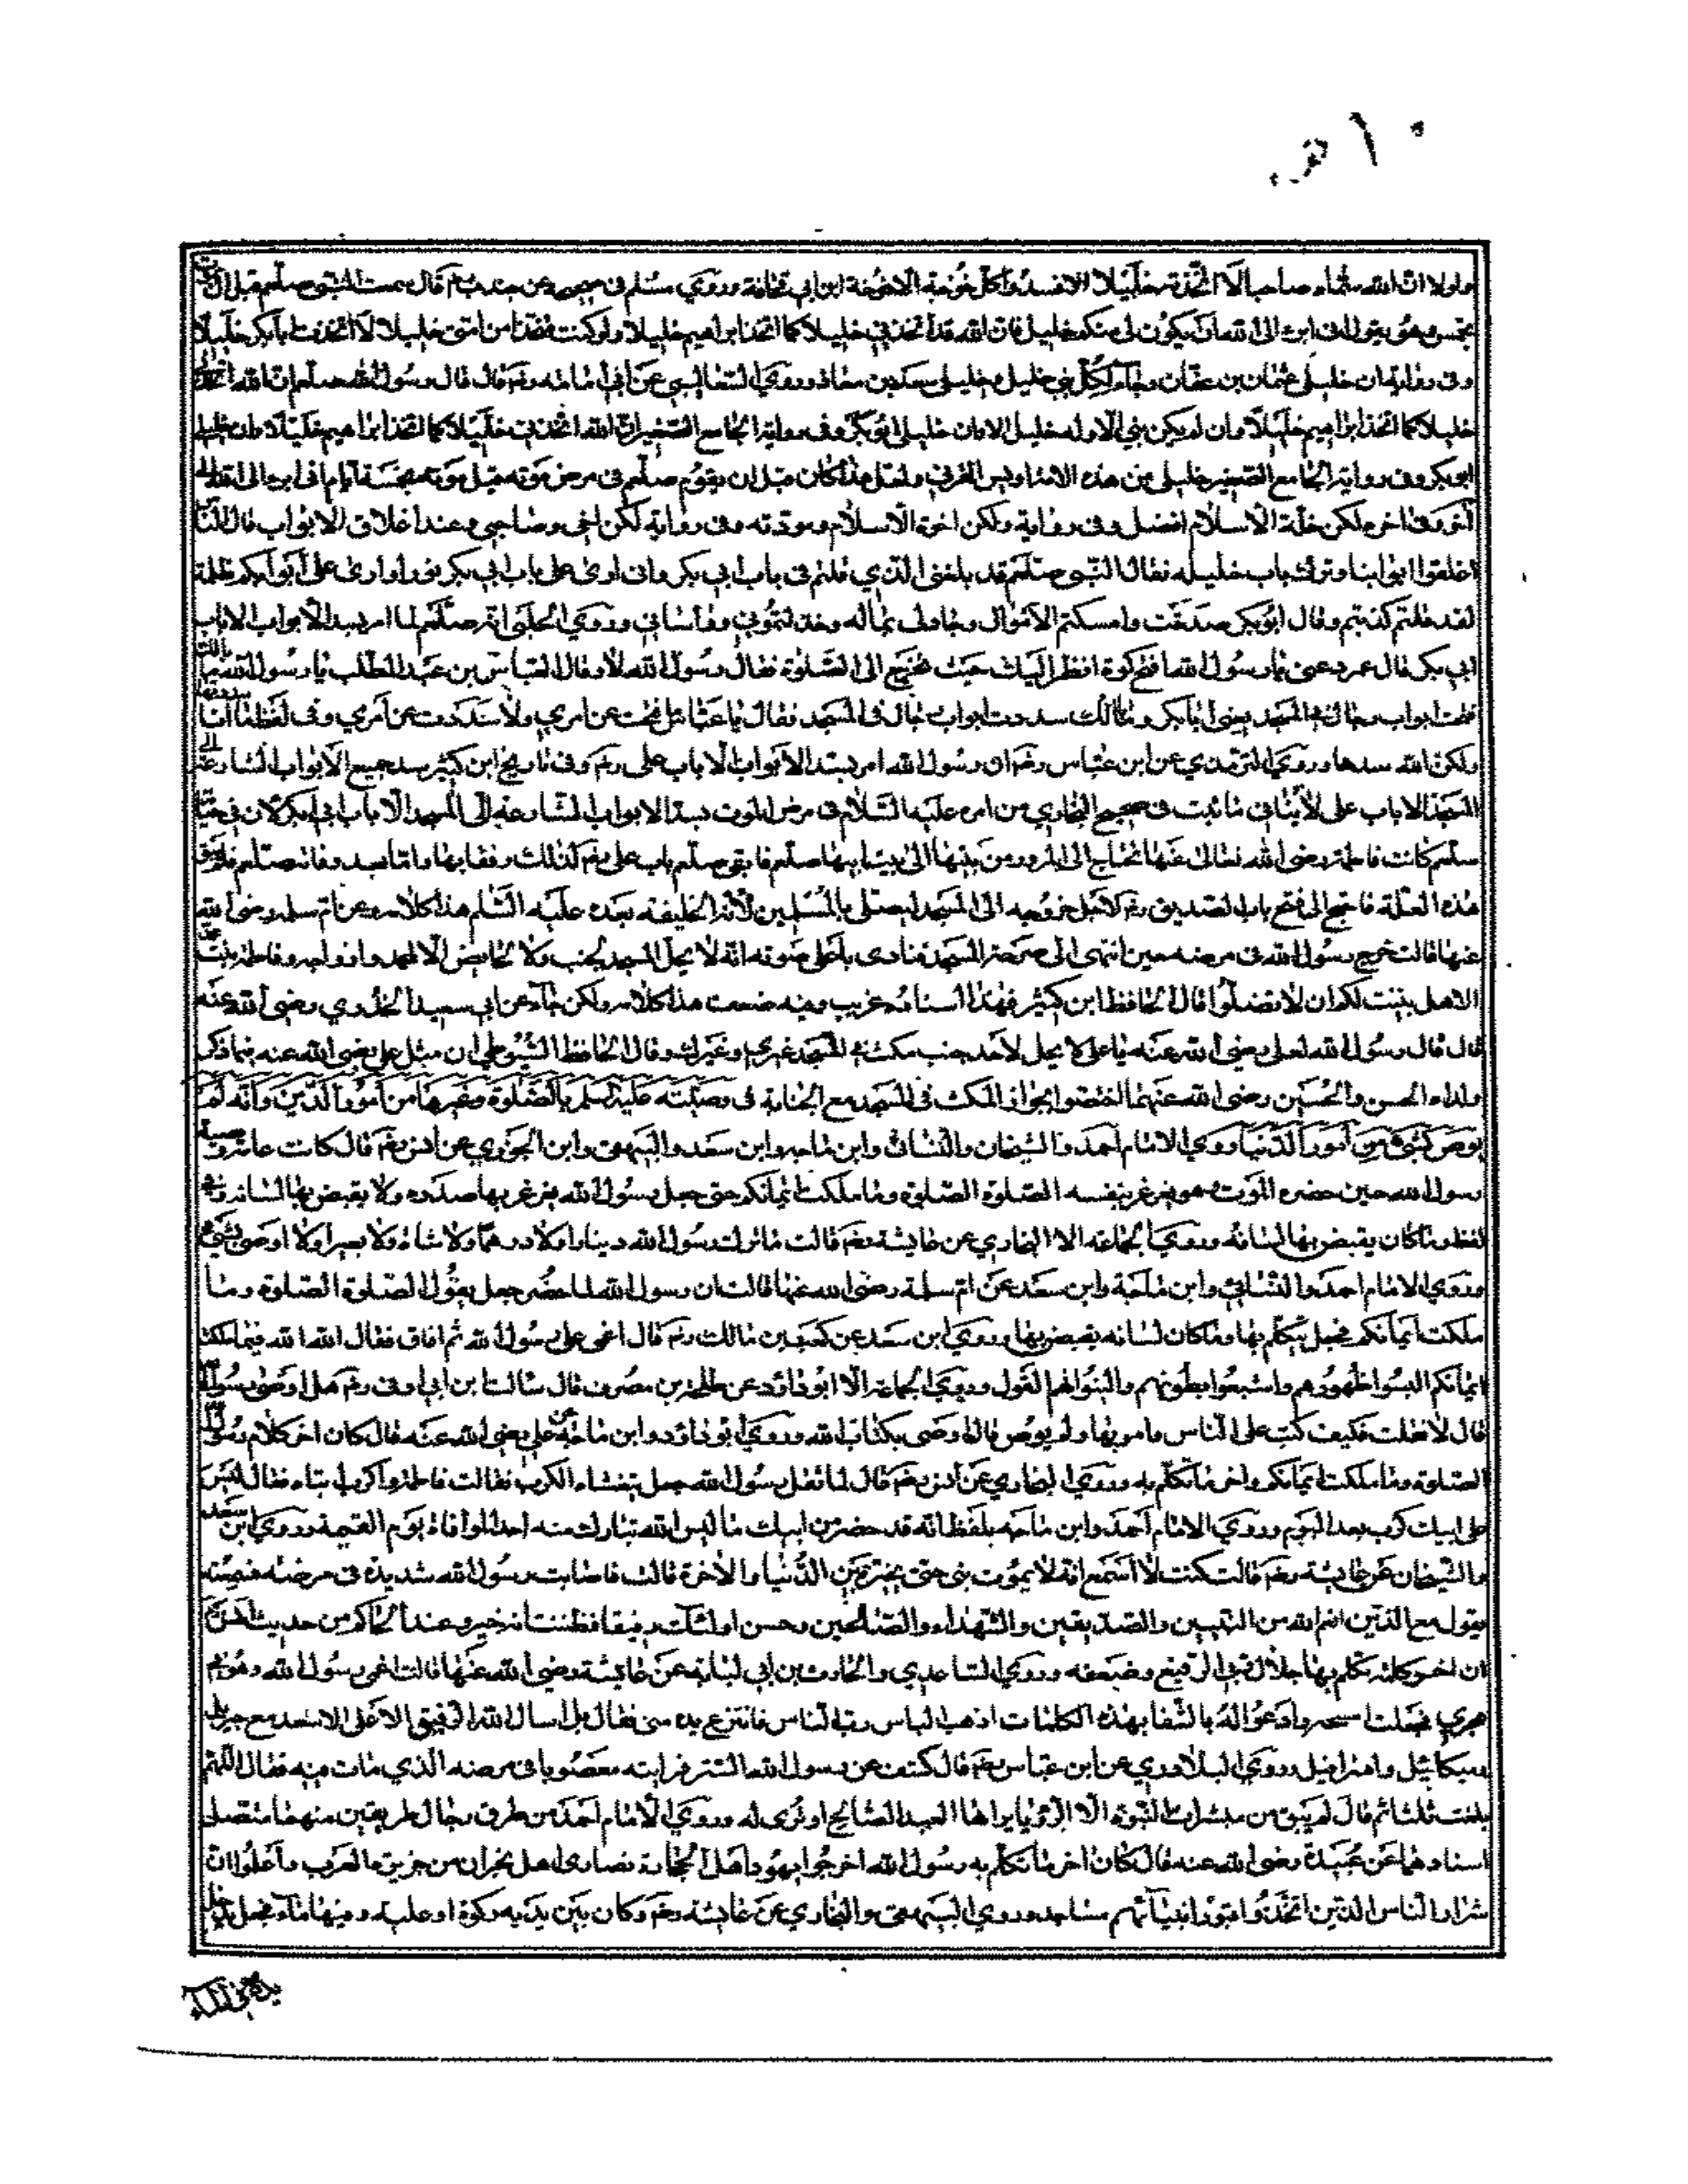 ولولا ان الله شاء صاحبا الا اتخذته خليلا الا فسدوا كل خوخة الا خوخة ابن ابي قحافة وروي مسلم في عن جندب قال سمعت النبي صلعم قبل ان
بخمس وهو يقول اني ابرء الى الله ان يكون لي منكم خليل فان الله قد اتخذني خليلا كما اتخذ ابراهيم خليلا ولو كنت متخذا من امتي خليلا لا اتخذت ابا بكر خليلا
وفي رواية ان خليلي عثمان بن عفان وجاء لكل نبي خليل وخليلي سعد بن معاذ وروي الثعالبي عن ابي امامة رضم قال قال رسول الله صلعم ان الله اتخذني
خليلا كما اتخذ ابراهيم خليلا وان لم يكن نبي الا وله خليل الا وان خليلي ابوبكر وفي رواية الجامع الصغير ان الله اتخذني خليلا كما اتخذ ابراهيم خليلا وان خليلي
ابو بكر وفي رواية الجامع الصغير خليلي من هذه الامة اويس القرني ولعل هذا كان قبل ان يقوم صلعم في مرض موته قبل موته بخمسة ايام اني ابرء الى الله
آخر ولكن خلة الاسلام افضل وفي رواية ولكن اخوة الاسلام ومودته وفي رواية لكن اخي وصاحبي وعند اغلاق الابواب قال الناس
اغلقوا ابوابنا وترك باب خليله فقال النبي صلعم قد بلغني الذي قلتم في باب ابي بكر واني ارى على باب ابي بكر نورا وارى على ابوابكم ظلمة
لقد قلتم كذبتم وقال ابوبكر صدقت وامسكتم الاموال وجاد لي بماله وخذلتموني وواساني وروي الحلبي انه صلعم لما امر بسد الابواب الا باب
ابي بكر قال عمر دعني يا رسول الله افتح كوة انظر اليك حيث تخرج الى الصلوة فقال رسول الله لا وقال العباس بن عبد المطلب يا رسول الله ما بالك
فتحت ابواب رجال في المسجد يعني ابا بكر وما بالك سددت ابواب رجال في المسجد فقال يا عباس ما فتحت عن امري ولا سددت عن امري وفي لفظ ما انا سددتها
ولكن الله سدها وروي الترمذي عن ابن عباس رضم ان رسول الله امر بسد الابواب الا باب علي رضم وفي تاريخ ابن كثير سد جميع الابواب الشارعة الى
المسجد الا باب علي لا ينافي ما ثبت في صحيح البخاري من امره عليه السلام في مرض الموت بسد الابواب الشارعة الى المسجد الا باب ابي بكر لان في حياته
صلعم كانت فاطمة رضي الله تعالى عنها تحتاج الى المرور من بيتها الى بيت ابيها صلعم فابقى صلعم باب علي رضم لذلك رفقا بها واما بعد وفاته صلعم فلم يبق
هذه العلة فاحتيج الى فتح باب الصديق رضم لاجل خروجه الى المسجد ليصلي بالمسلمين لانه الخليفة بعده عليه السلام هذا كلامه وعن ام سلمة رضي الله
عنها قالت خرج رسول الله في مرضه حين انتهى الى صرحة المسجد فنادى باعلى صوته انه لا يحل المسجد لجنب ولا لحائض الا لمحمد وازواجه وفاطمة بنت محمد
الا هل بينت لكم ان لا تضلوا قال الحافظ ابن كثير فهذا اسناده غريب وفيه ضعف هذا كلامه ولكن جاء عن ابي سعيد الخدري رضي الله عنه
قال قال رسول الله لعلي رضي الله عنه يا علي لا يحل لاحد جنب مكث في المسجد غيري وغيرك وقال الحافظ السيوطي ان مثل علي رضي الله عنه فيما ذكر
ولداه الحسن والحسين رضي الله عنهما اختصوا بجواز المكث في المسجد مع الجنابة في وصيته عليه السلم بالصلوة وغيرها من امور الدين وانه لم
يوص بشيء من امور الدنيا روي الامام احمد والشيخان والنسائي وابن ماجه وابن سعد والبيهقي وابن الجوزي عن انس رضم قال كانت عامة وصية
رسول الله حين حضره الموت وهو يغرغر بنفسه الصلوة الصلوة وما ملكت ايمانكم حتى جعل رسول الله يغرغر بها صدره ولا يقبض بها لسانه وفي
لفظ وما كان يقبض بها لسانه وروي الجماعة الا البخاري عن عايشة رضم قالت ما ترك رسول الله دينارا ولا درهما ولا شاة ولا بعيرا ولا اوصى بشيء
وروي الامام احمد والنسائي وابن ماجة وابن سعد عن ام سلمة رضي الله عنها قالت ان رسول الله لما حضر جعل يقول الصلوة الصلوة وما
ملكت ايمانكم فجعل يتكلم بها وما كان لسانه يقبض بها وروي ابن سعد عن كعب بن مالك رضم قال اغمي على رسول الله ثم افاق فقال الله الله فيما ملكت
ايمانكم البسوا ظهورهم واشبعوا بطونهم والينوا لهم القول وروي الجماعة الا ابو داؤد عن طلحة بن مصرف قال سالت ابن ابي اوفى رضم هل اوصى رسول الله
قال لا فقلت فكيف كتب على الناس وامر بها ولم يوص قال اوصى بكتاب الله وروي ابو داؤد وابن ماجة عن علي رضي الله عنه قال كان اخر كلام رسول الله
الصلوة وما ملكت ايمانكم واخر ما تكلم به وروي البخاري عن انس رضم قال لما ثقل رسول الله جعل يتغشاه الكرب فقالت فاطمة واكرب ابتاه فقال ليس
على ابيك كرب بعد اليوم وروي الامام احمد وابن ماجه بلفظ انه قد حضر من ابيك ما ليس الله تبارك منه احدا لموافاة يوم القيمة وروي ابن سعد
والشيخان عن عايشة رضم قالت كنت لا اسمع انه لا يموت نبي حتى يخير بين الدنيا والاخرة قالت فاصابت رسول الله شديدة في مرضه فسمعته
يقول مع الذين انعم الله من النبيين والصديقين والشهداء والصالحين وحسن اولئك رفيقا فظننت انه خير وعند الحاكم من حديث انس
ان اخر كلمة تكلم بها جلال ربي الرفيع وضعفه وروي الساعدي والحارث بن ابي اسامة عن عايشة رضي الله عنها قالت اغمي رسول الله وهو في
حجري فجعلت امسحه وادعو له بالشفا بهذه الكلمات اذهب الباس رب الناس فانتزع يده مني فقال بل اسال الله الرفيق الاعلى الاسعد مع جبريل
وميكائيل واسرافيل وروي البلاذري عن ابن عباس رضم قال كشف عن رسول الله الستر فرايته معصوبا في مرضه الذي مات فيه فقال اللهم
بلغت ثلثا ثم قال لم يبق من مبشرات النبوة الا الرؤيا يراها العبد الصالح او ترى له وروي الامام احمد من طرق رجال طريقين منهما متصل
اسنادهما عن عبيدة رضي الله عنه قال كان اخر ما تكلم به رسول الله اخرجوا يهود اهل الحجاز ونصارى اهل نجران من جزيرة العرب واعلموا ان
شرار الناس الذين اتخذوا قبور انبيائهم مساجد وروي البيهقي والبخاري عن عايشة رضم وكان بين يديه ركوة او علبة وفيها ماء فجعل يدخل
يديه في الماء